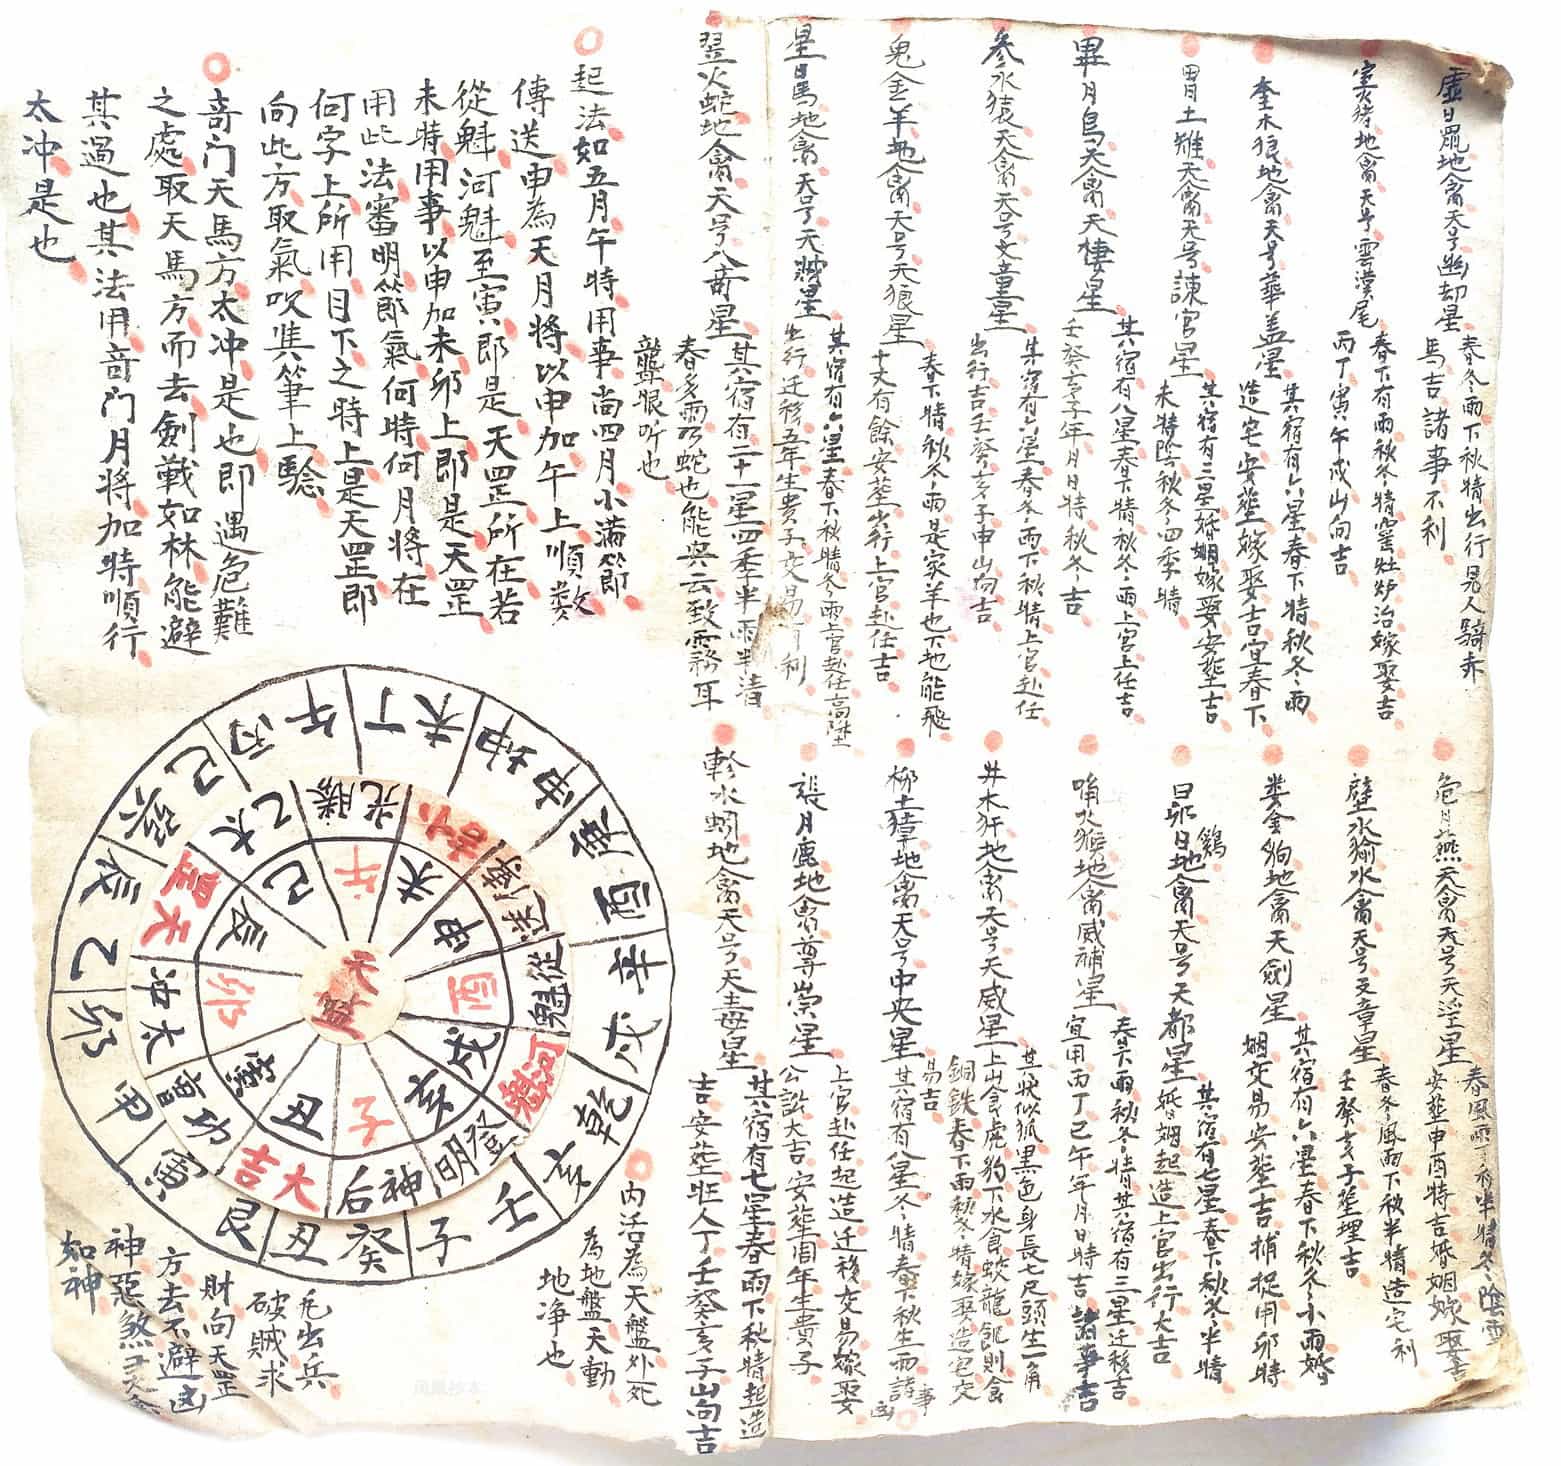 虚日鼠地禽天号幽却星
春冬雨下秋晴出行見人騎赤
馬吉諸事不利
室火猪地禽天号雲漢尾
春下有雨秋冬晴窑灶炉治嫁娶吉
丙丁寅午戌山向吉
奎木狼地禽天号華盖星
其宿有六星春下晴秋冬雨
造宅安葬嫁娶吉宜春下
胃土雉天禽天号諫官星
其宿有三星婚姻嫁娶安葬吉
未時陰秋冬四季晴
畢月烏天禽天棲星
其宿有八星春下晴秋冬雨上官上任吉
壬癸亥子年月日時秋冬吉
參水猿天禽天号文童星
其宿有六星春冬雨下秋晴上官赴任
出行吉壬癸亥子申山向吉
鬼金羊地禽天号天狼星
春下晴秋冬雨是家羊也下地能飛
十丈有餘安葬出行上官赴任吉
星馬地禽天号天將星
其宿有六星春下秋晴冬雨上官赴任高陞
出行迁移五年生貴子交易有利
翌火蛇地禽天号八奇星
其宿有二十一星四季半雨半清
春多雨乃蛇也能興云致霧耳
聾眼听也
危月燕天禽天号天淫星
春風雨下秋半晴冬陰雪
安葬申酉時吉婚姻嫁娶吉
壁水㺄水禽天号文章星
春冬風雨下秋半晴造宅利
壬癸亥子葬埋吉
娄金狗地禽天劍星
其宿有六星春下秋冬小雨婚
姻交易安葬吉捕捉用卯時
昴日鷄地禽天号天都星
其宿有七星春下秋冬半晴
婚姻起造上官出行大吉
嘴火猴地禽威補星
春下雨秋冬晴其宿有三星迁移吉
宜用丙丁巳午年月日時吉諸事吉
井木犴地禽天号天威星
其狀似狐黑色身長七尺頭生一角
上山食虎豹下水食蛟龍飢則食
銅鉄春下雨秋冬晴嫁娶造宅交
易吉
柳土獐地禽天号中央星
其宿有八星冬晴春下秋生雨諸事凶
張月鹿地禽尊崇星
上官赴任起造迁移交易嫁娶
公訟大吉安葬周年生貴子
軫水蚓地禽天号天毒星
其宿有七星春雨下秋晴起造
吉安葬旺人丁壬癸亥子山向吉
起法如五月午時用事尚四月小滿節
傳送申為天月將以申加午上順数
從魁河魁至寅即是天罡所在若
未時用事以申加未卯上即是天罡
用此法審明節氣何時何月將在
何字上所用目下之時上是天罡即
向此方取氣吹隽筆上驗
奇门天馬方太冲是也即遇危難
之處取天馬方而去劍戟如林能避
其過也其法用奇门月將加時順行
太冲是也
天盤
午未申酉戌亥子丑寅卯辰巳
勝光小吉傳送從魁河魁登明神后大吉功曹太冲天罡太乙
午丁未坤申庚酉辛戌乾亥壬子癸丑艮寅甲卯乙辰巽巳丙
内活為天盤外死
為地盤天動
地净也
凡出兵
破賊求
財向天罡
方去不避凶
神惡煞
如神